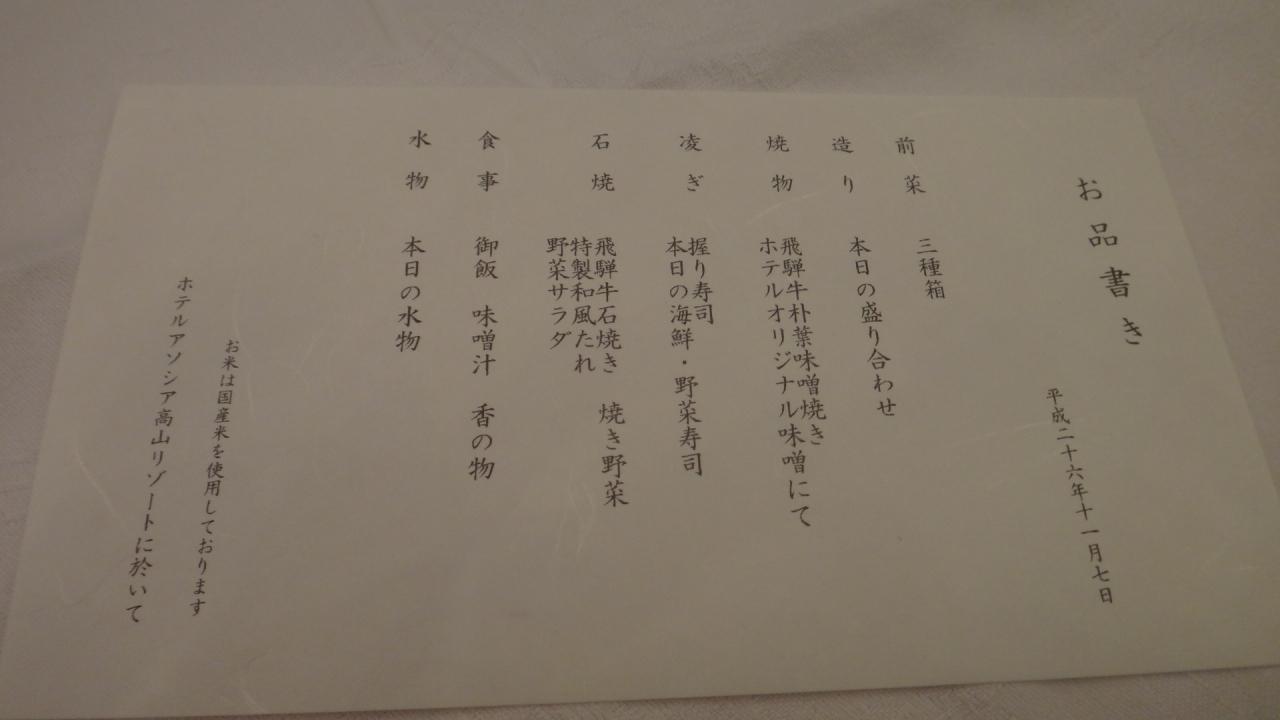 お品書き
平成二十六年十一月七日
前菜　三種箱
造り　本日の盛り合わせ
焼物　飛騨牛朴葉味噌焼き
ホテルオリジナル味噌にて
凌ぎ　握り寿司
本日の海鮮・野菜寿司
石焼　飛騨牛石焼き　焼き野菜
特製和風たれ
野菜サラダ
食事　御飯　味噌汁　香の物
水物　本日の水物
お米は国産米を使用しております
ホテルアソシア高山リゾートに於いて